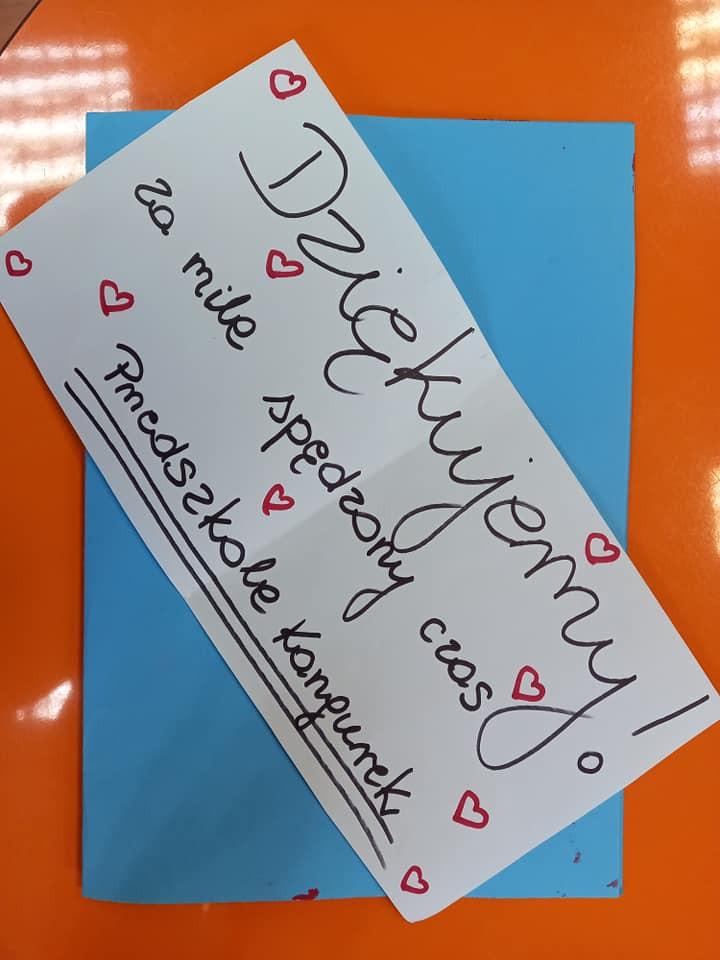 Dziękujemy!
za mile spędzony czas
Przedszkole Kangurek